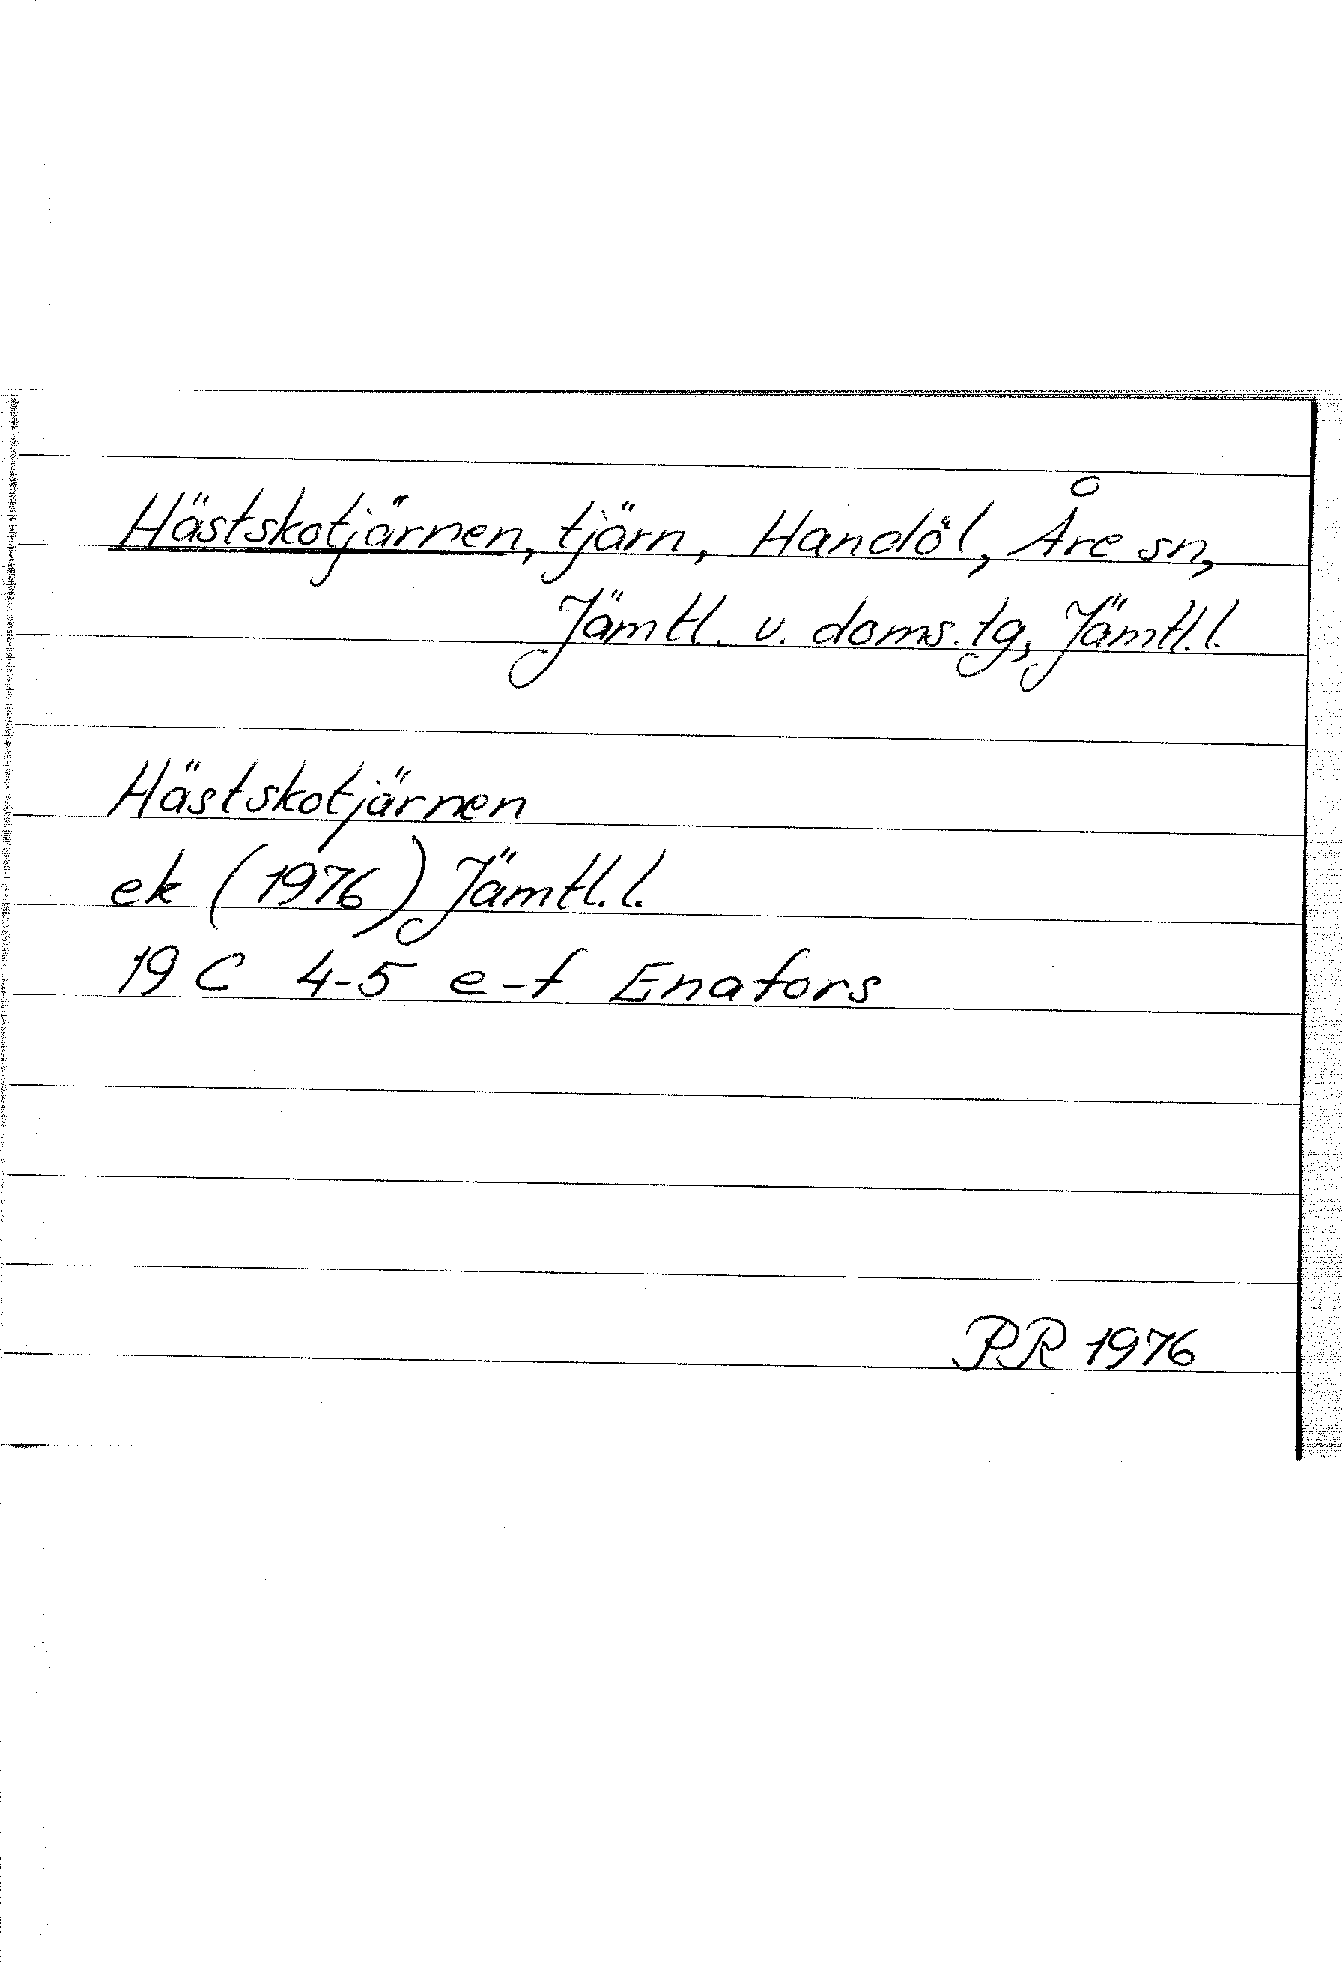 Hästskotjärnen, tjärn, Handöl, Åre sn,
Jämtl. v. doms.lg, Jämtl.l.
Hästskotjärnen
ek (1976) Jämtl.l.
19 C 4-5 e-f Enafors
PR 1976